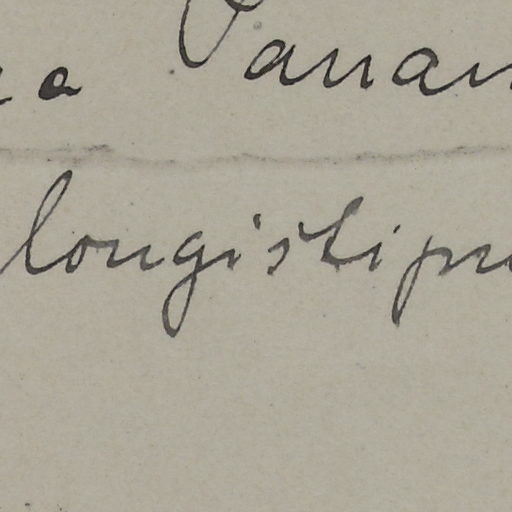 a Panam
longistipu